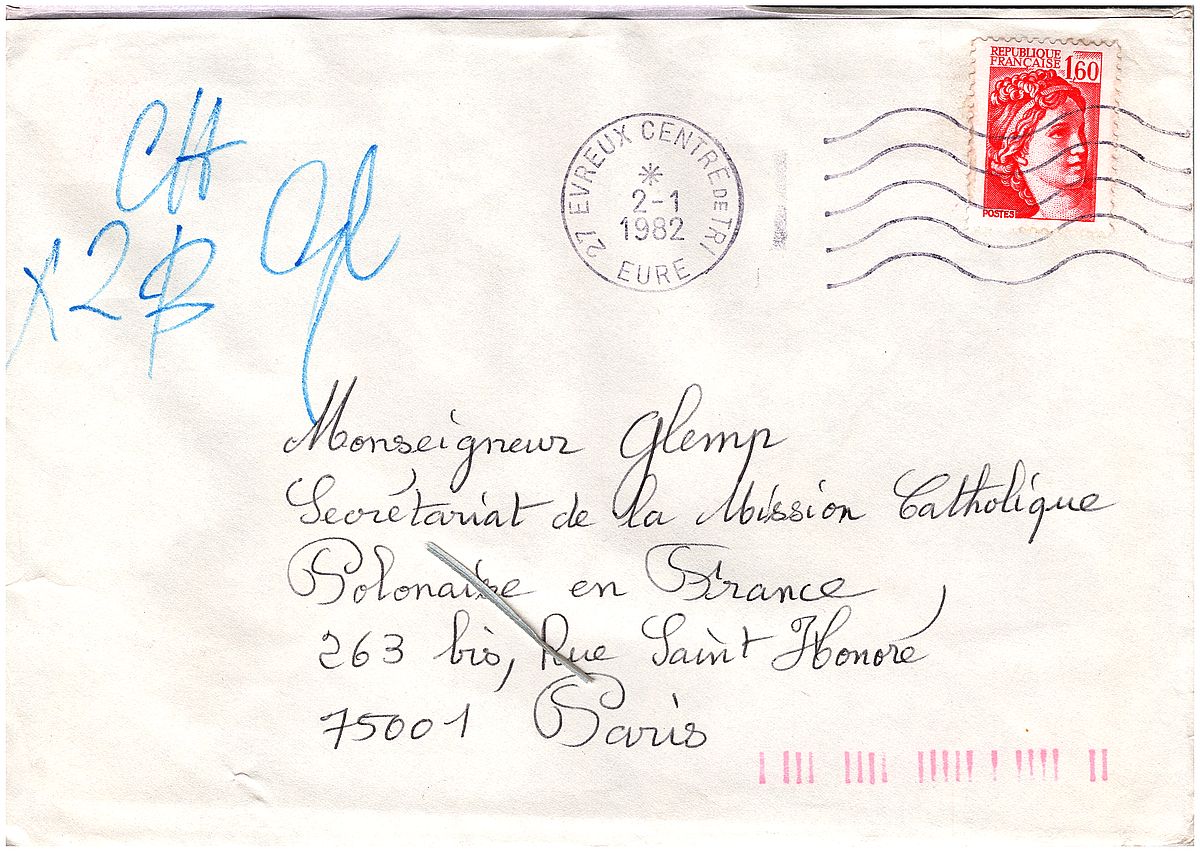 REPUBLIQUE
FRANÇAISE
1,60
POSTES
27 EVREUX CENTRE DE TRI
2-1
1982
EURE
CH
x2
Monseigneur Glemp
Secrétariat de la Mission Catholique
Polonaise en France
263 bis, Rue Saint Honoré
75001 Paris